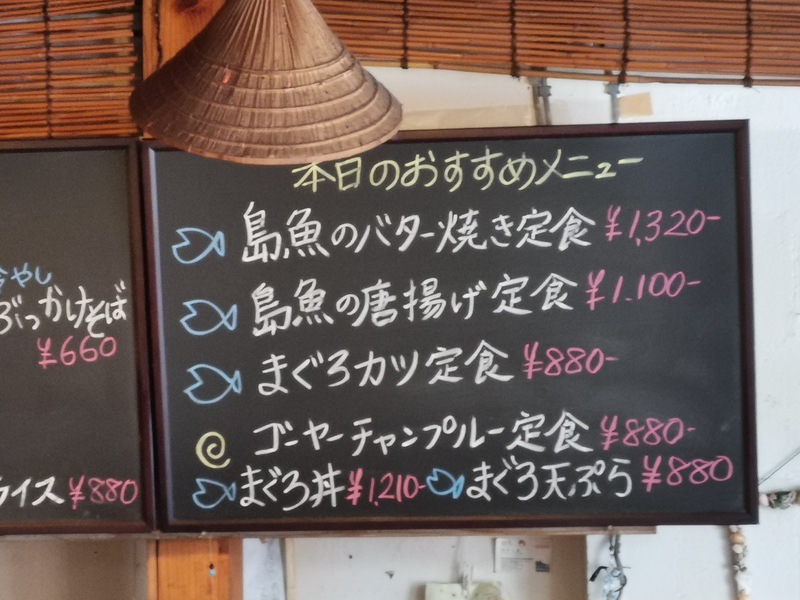 冷やし
ぶっかけそば
¥660
ライス ¥880
本日のおすすめメニュー
島魚のバター焼き定食 ¥1,320-
島魚の唐揚げ定食 ¥1.100-
まぐろカツ定食 ¥880-
ゴーヤーチャンプルー定食 ¥880-
まぐろ丼 ¥1,210- まぐろ天ぷら ¥880